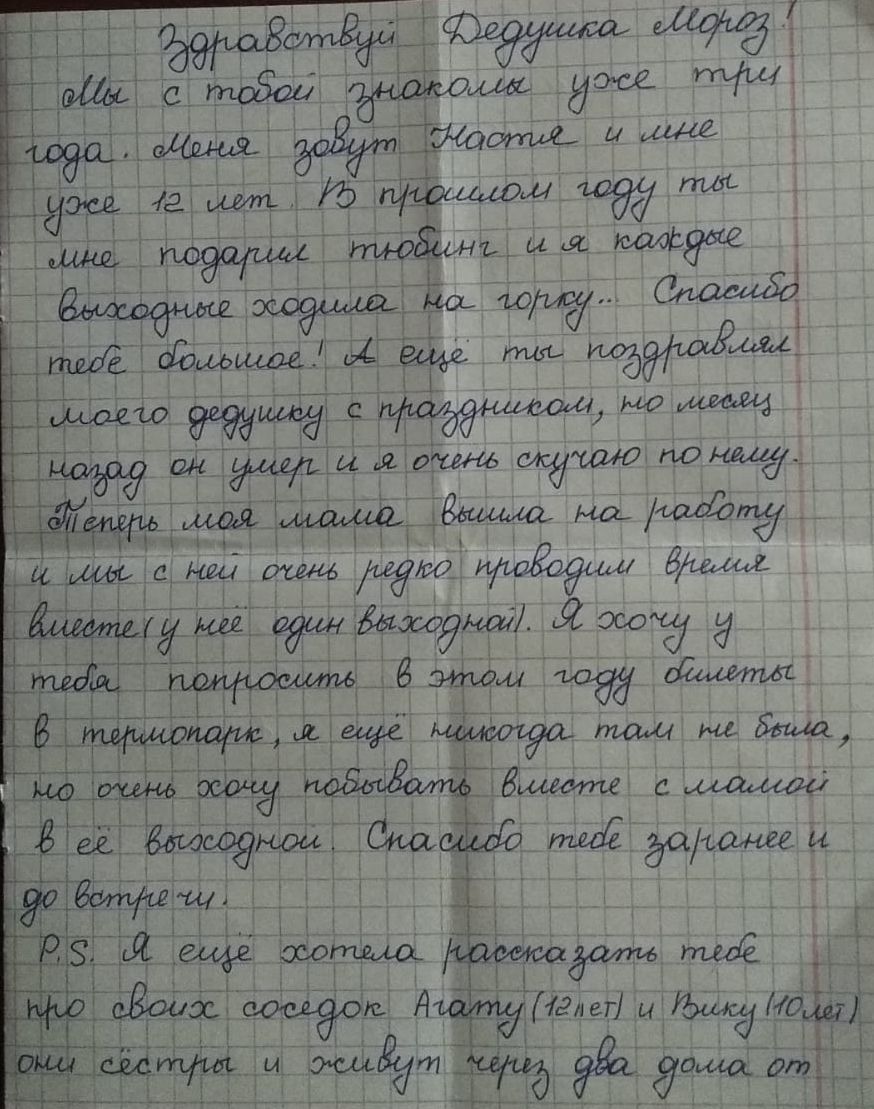 Здравствуй Дедушка Мороз!
Мы с тобой знакомы уже три
года. Меня зовут Настя и мне
уже 12 лет. В прошлом году ты
мне подарил тюбинг и я каждые
выходные ходила на горку... Спасибо
тебе большое! А ещё ты поздравлял
моего дедушку с праздником, но месяц
назад он умер и я очень скучаю по нему.
Теперь моя мама вышла на работу
и мы с ней очень редко проводим время
вместе (у неё один выходной). Я хочу у
тебя попросить в этом году билеты
в термопарк, я ещё никогда там не была,
но очень хочу побывать вместе с мамой
в её выходной. Спасибо тебе заранее и
до встречи.
P.S. Я ещё хотела рассказать тебе
про своих соседок Агату (12 лет) и Вику (10 лет)
они сёстры и живут через два дома от